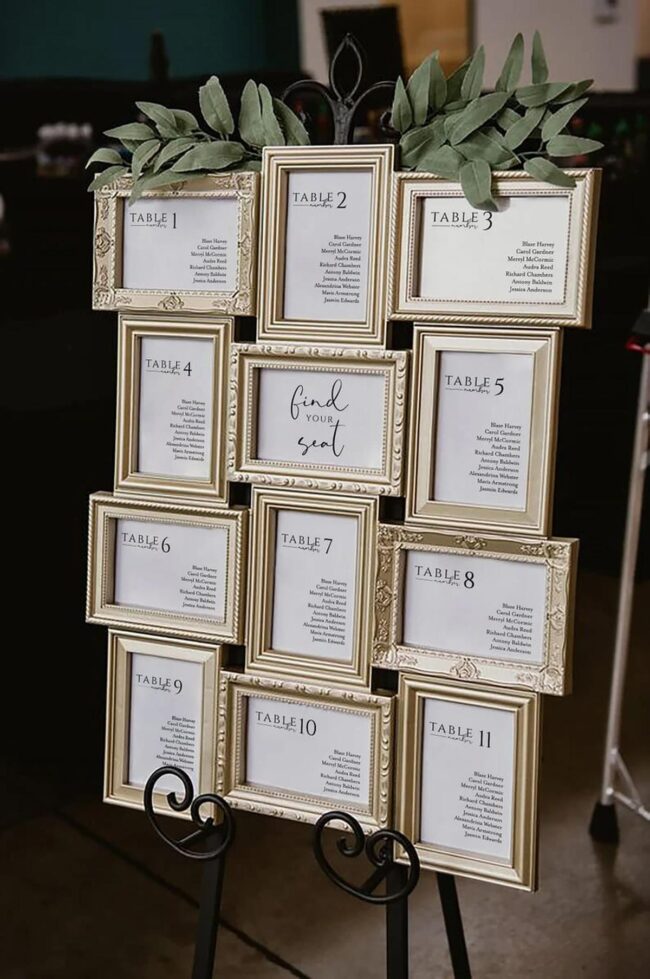 TABLE 1
number
Blase Harvey
Carol Gardner
Merryl McCormic
Audra Reed
Richard Chambers
Antony Baldwin
Jessica Anderson
TABLE 2
number
Blase Harvey
Carol Gardner
Merryl McCormic
Audra Reed
Richard Chambers
Antony Baldwin
Jessica Anderson
Alexandrina Webster
Mavis Armstrong
Jasmin Edwards
TABLE 3
number
Blase Harvey
Carol Gardner
Merryl McCormic
Audra Reed
Richard Chambers
Antony Baldwin
Jessica Anderson
TABLE 4
number
Blase Harvey
Carol Gardner
Merryl McCormic
Audra Reed
Richard Chambers
Antony Baldwin
Jessica Anderson
Alexandrina Webster
Mavis Armstrong
Jasmin Edwards
find
YOUR
seat
TABLE 5
number
Blase Harvey
Carol Gardner
Merryl McCormic
Audra Reed
Richard Chambers
Antony Baldwin
Jessica Anderson
Alexandrina Webster
Mavis Armstrong
Jasmin Edwards
TABLE 6
number
Blase Harvey
Carol Gardner
Merryl McCormic
Audra Reed
Richard Chambers
Antony Baldwin
Jessica Anderson
TABLE 7
number
Blase Harvey
Carol Gardner
Merryl McCormic
Audra Reed
Richard Chambers
Antony Baldwin
Jessica Anderson
Alexandrina Webster
Mavis Armstrong
Jasmin Edwards
TABLE 8
number
Blase Harvey
Carol Gardner
Merryl McCormic
Audra Reed
Richard Chambers
Antony Baldwin
Jessica Anderson
TABLE 9
number
Blase Harvey
Carol Gardner
Merryl McCormic
Audra Reed
Richard Chambers
Antony Baldwin
Jessica Anderson
Alexandrina Webster
Mavis Armstrong
TABLE 10
number
Blase Harvey
Carol Gardner
Merryl McCormic
Audra Reed
Richard Chambers
Antony Baldwin
Jessica Anderson
TABLE 11
number
Blase Harvey
Carol Gardner
Merryl McCormic
Audra Reed
Richard Chambers
Antony Baldwin
Jessica Anderson
Alexandrina Webster
Mavis Armstrong
Jasmin Edwards